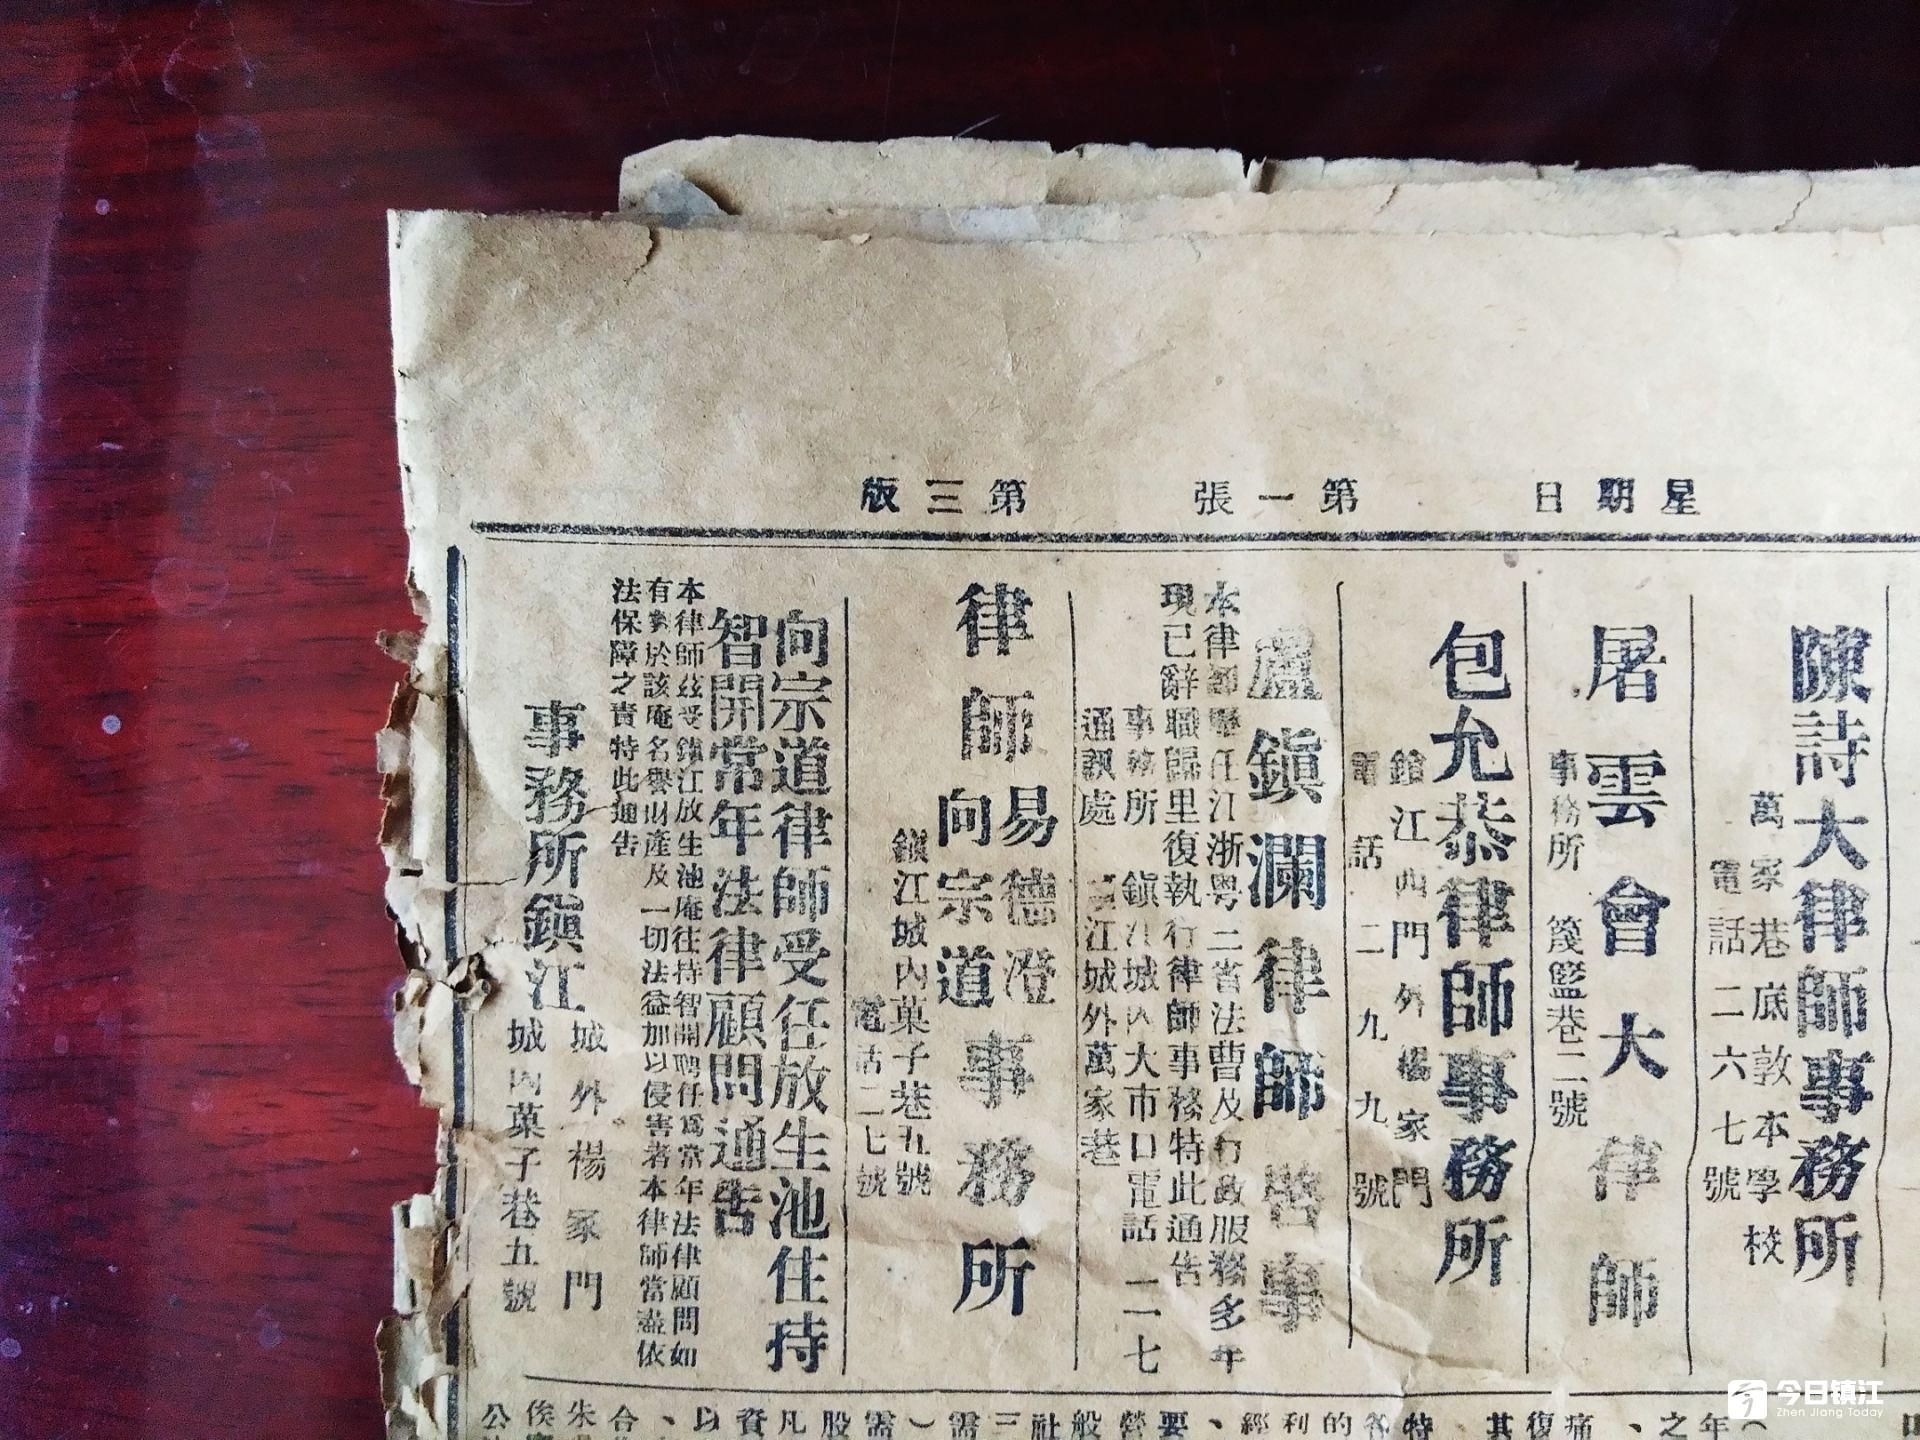 星期日
第一張
第三版
陳詩大律師事務所
萬家巷底敦本學校
電話二六七號
屠雲會大律師
事務所 篾籃巷二號
包允恭律師事務所
鎮江西門外楊家門
電話二九九號
盧鎮瀾律師啓事
本律師歷任江浙粤二省法曹及行政服務多年
現已辭職歸里復執行律師事務特此通告
事務所 鎮江城內大市口電話二一七
通訊處 鎮江城外萬家巷
律師易德澄
向宗道事務所
鎮江城內菓子巷五號
電話二七號
向宗道律師受任放生池住持
智開常年法律顧問通告
本律師茲受鎮江放生池庵住持智開聘任爲常年法律顧問如
有對於該庵名譽財產及一切法益加以侵害者本律師當盡依
法保障之責特此通告
事務所鎮江
城外楊家門
城內菓子巷五號
今日镇江
Zhen Jiang Today